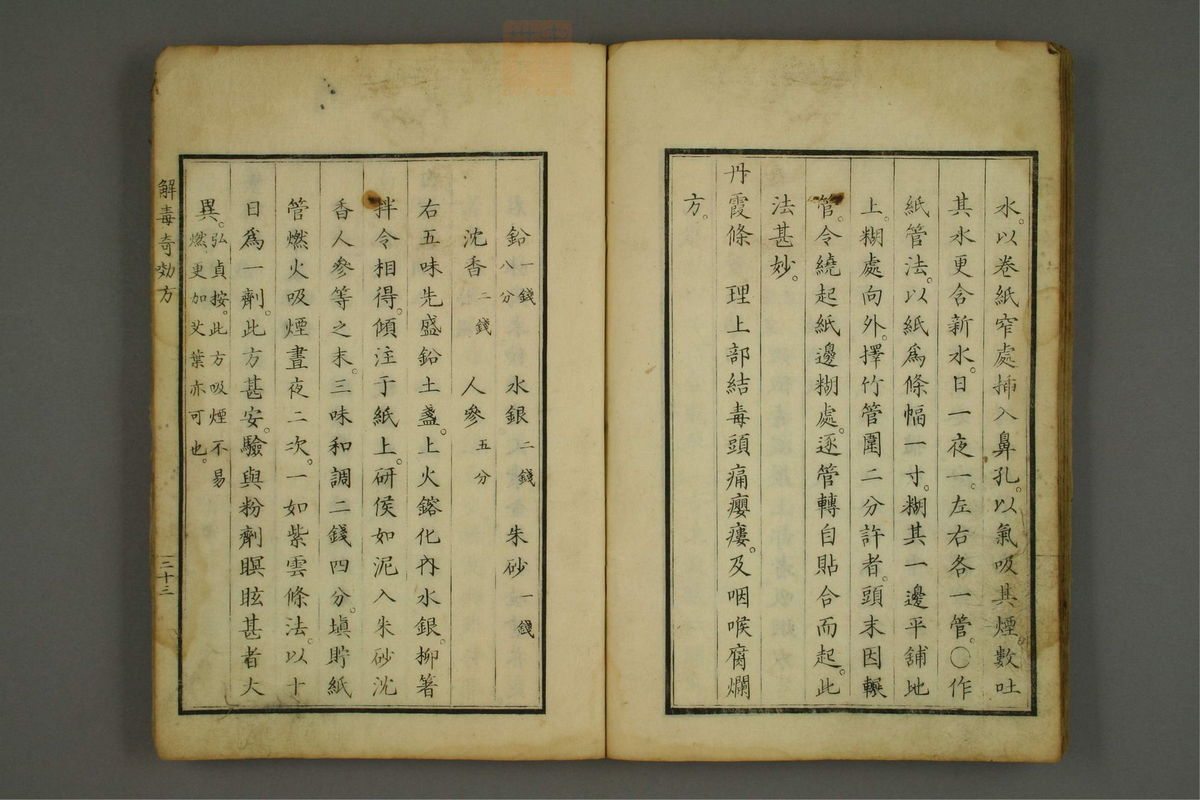 水。以卷紙窄處挿入鼻孔。以氣吸其煙。數吐
其水更含新水。日一夜一。左右各一管。〇作
紙管法。以紙爲條幅一寸。糊其一邊平舖地
上。糊處向外。擇竹管圍二分許者。頭末因輾
管。令繞起紙邊糊處。逐管轉自貼合而起。此
法甚妙。
丹霞條　理上部結毒頭痛癭瘻。及咽喉腐爛
方。
鉛一錢八分　水銀二錢　朱砂一錢
沈香二錢　人參五分
右五味先盛鉛土盞。上火鎔化內水銀。柳箸
拌令相得。傾注于紙上。研侯如泥入朱砂沈
香人參等之末。三味和調二錢四分。塡貯紙
管燃火吸煙晝夜二次。一如紫雲條法。以十
日爲一劑。此方甚安。驗與粉劑瞑眩甚者大
異。弘貞按。此方吸煙不易
燃更加艾葉亦可也。
解毒奇効方
二十三